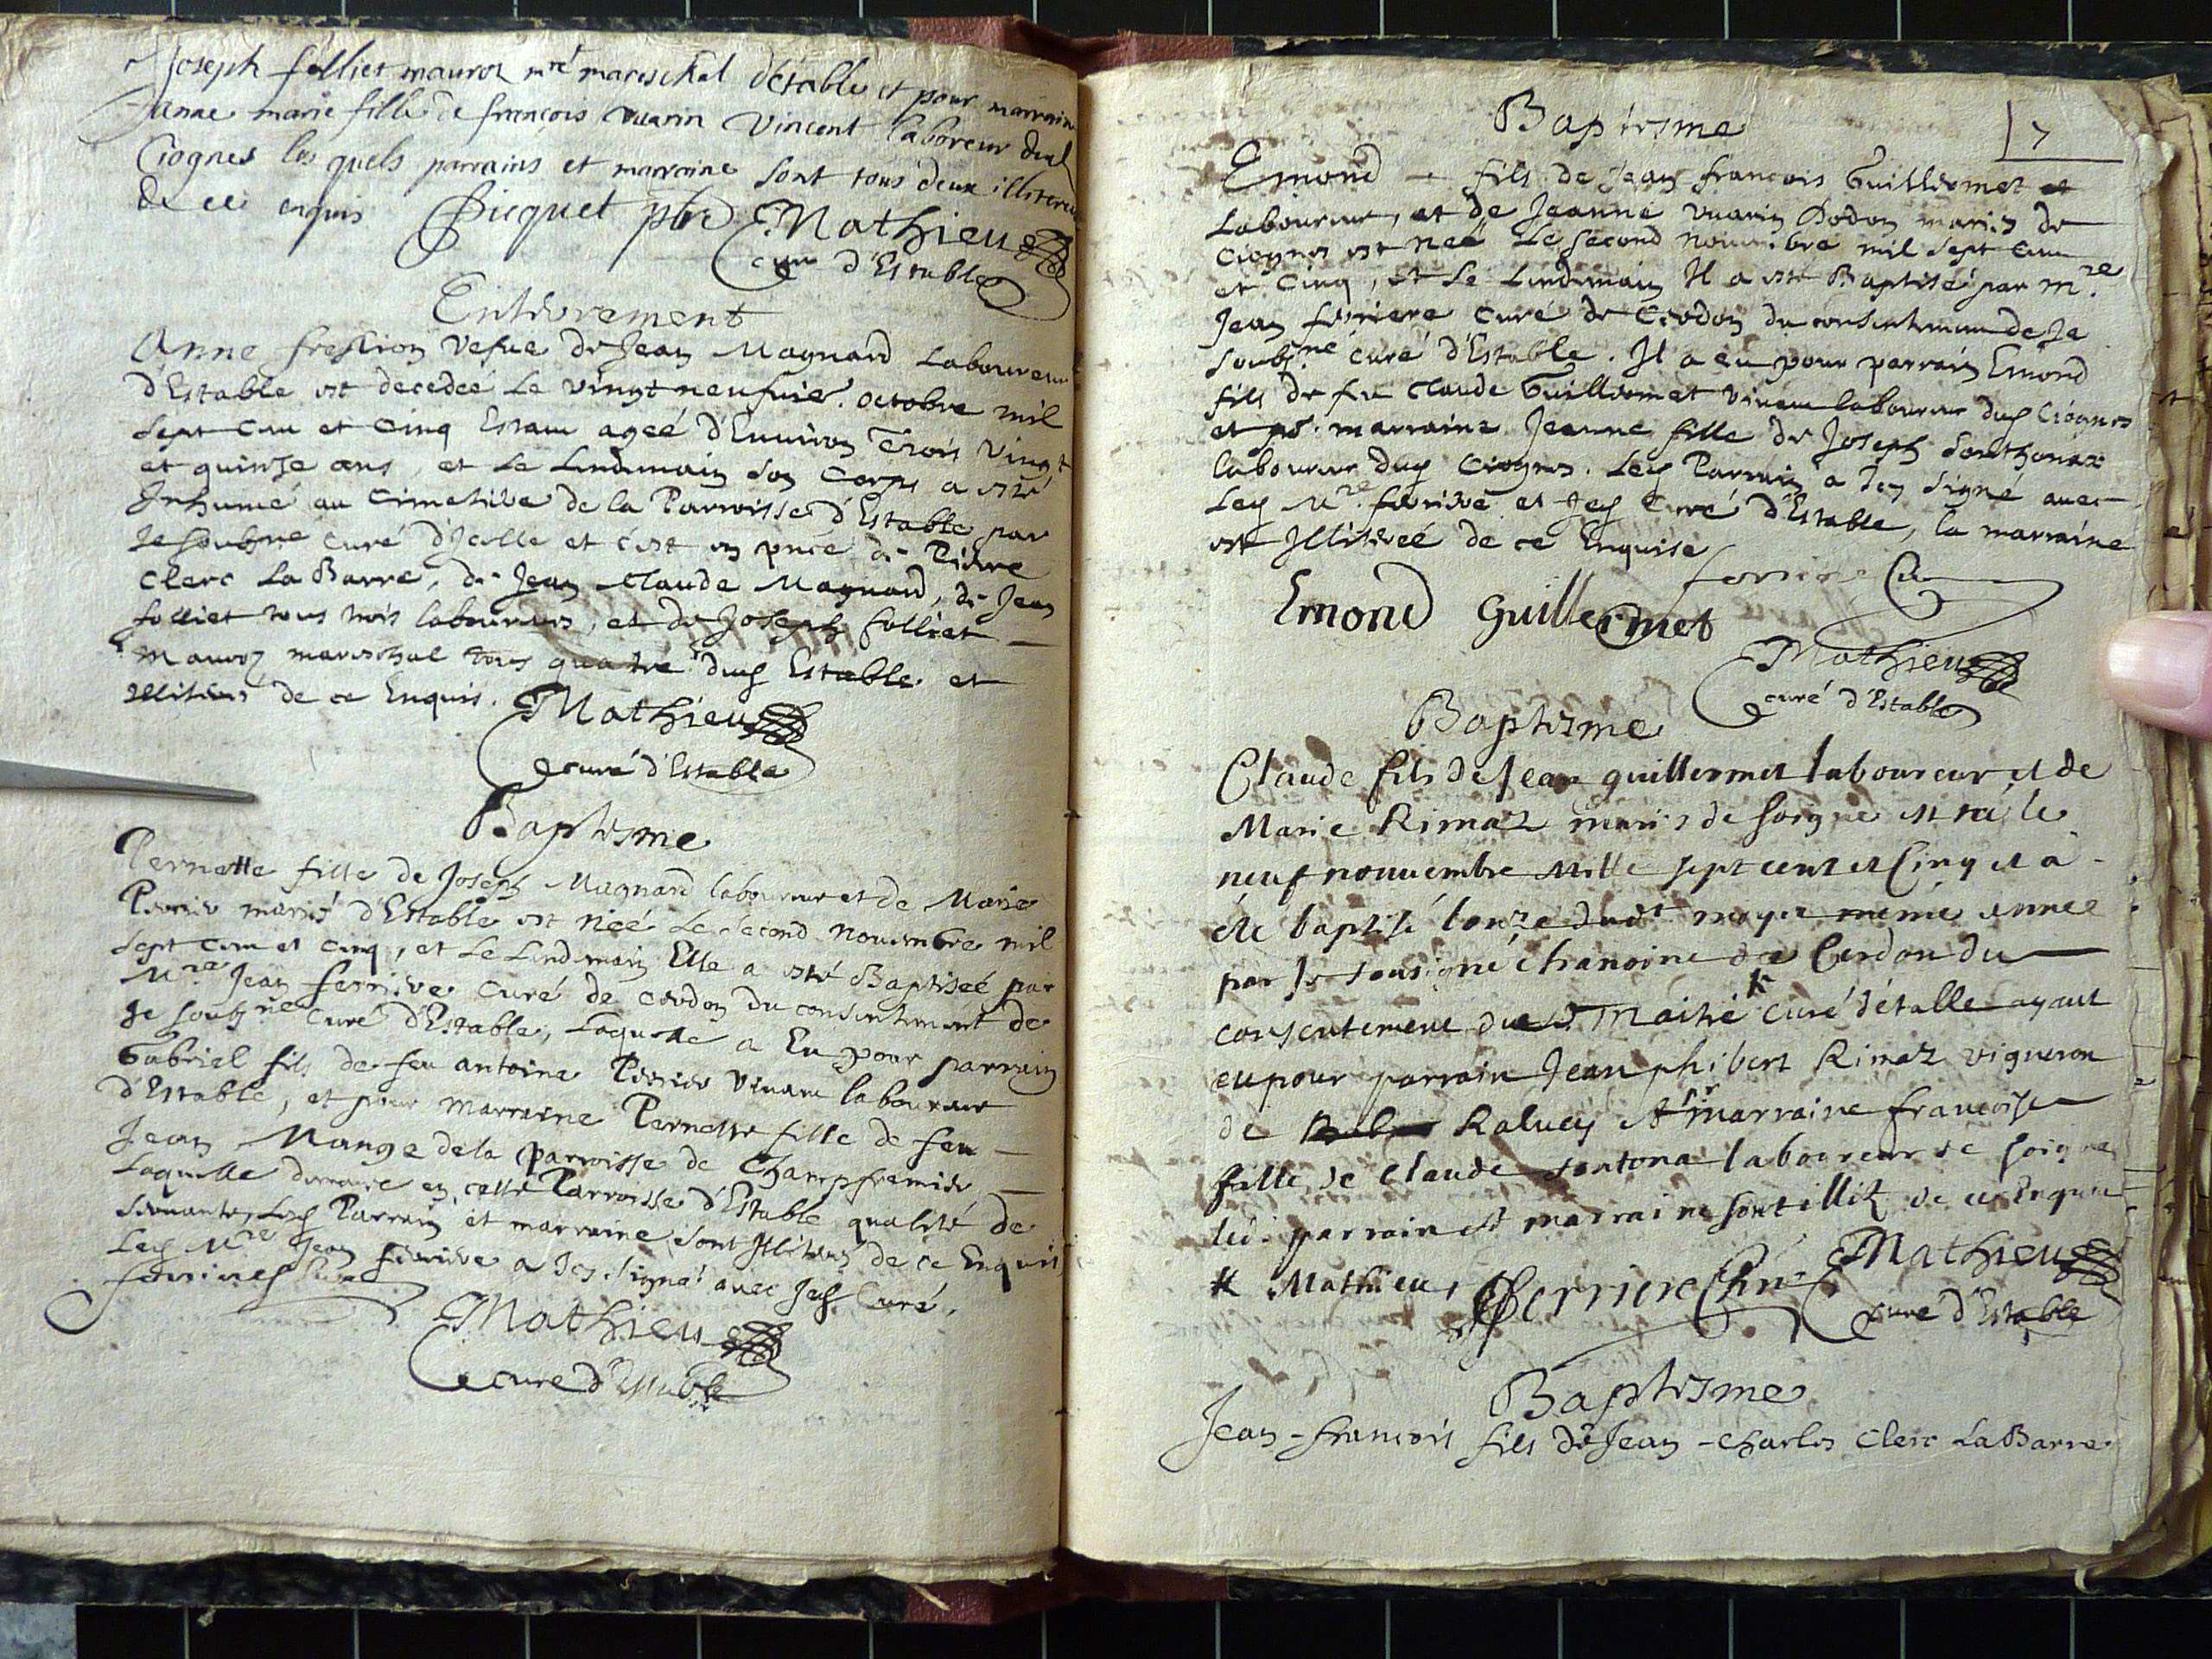 Joseph folliet mauroz mre mareschal détable et pour marraine
Janne marie fille de françois vuarin vincent laboreur dud
Ciognes lesquels parrains et marraine sont tous deux illiterez
de ce enquis Picquet pbre Mathieu
curé d'Estable
Enterrement
Anne freslion vefue de Jean Magnard Laboureur
d'Estable est decedeé le vingt neufuie. octobre mil
sept cen et cinq Estant ageé d'Enuiron Trois vingt
et quinse ans, et le Lendemain son Corps a esté
Inhumé au Cimetiere de la Parroisse d'Estable par
Je soubsne curé d'Icelle et c'est en pnce de Pierre
Clerc La Barre, de Jean Claude Magnard, de Jean
folliet tous trois laboureurs, et de Joseph folliet
Mauroz mareschal tous quatre duS Estable et
Illiterés de ce Enquis. Mathieu
curé d'Estable
Baptesme
Pernette fille de Joseph Magnard laboureur et de Marie
Perrier mariés d'Estable est neé le second nouembre mil
sept cen et cinq, et le Lendemain Elle a esté Baptiseé par
Mre Jean ferriere curé de cerdon du consentement de
Je soubsne curé d'Estable, Laquelle a Eu pour parrain
Gabriel fils de feu antoine Perrier viuant laboureur
d'Estable, et pour marraine Pernette fille de feu
Jean Mange de la parroisse de Champfremier
Laquelle demeure en cette Parroisse d'Estable qualité de
seruante, LesS Parrain et marraine sont Illiterés de ce Enquis
LeS Mre Jean ferriere a Icy signé auec JeS Curé.
ferriere
Mathieu
curé d'Estable
7
Baptesme
Emond fils de Jean françois Guillermet
Laboureur, et de Jeanne vuarin Dodon mariés de
Ciognes est neé Le second nouembre mil sept cen
et cinq, et le Lendemain Il a esté Baptisé par Mre
Jean ferriere curé de Cerdon du consentement de Je
soubsne curé d'Estable. Il a eu pour parrain Emond
fils de feu Claude Guillermet viuant laboureur duS Ciognes
et pr. marraine Jeanne fille de Joseph Sonthonax
laboureur duS Ciognes. LeS Parrain a Icy signé auec
LeS Mre ferriere et JeS Curé d'Estable, la marraine
est Illitereé de ce Enquise
ferriere
Emond Guillermet
Mathieu
curé d'Estable
Baptesme
Claude fils de Jean guillermet laboureur et de
Marie Rimaz mariés de soigne est né le
neuf nouuembre Mille sept cent et Cinq et a
été baptisé l'onze dudt moys meme annee
par Je sousigné chanoine de Cerdon du
consentement dudt Maitre * curé détable ayant
eu pour parrain Jean phibert Rimaz vigneron
de Ralucy et pr marraine francoise
fille de Claude sontona laboureur de soigne
ledt parrain et marraine sont illit. de ce Enquis
* Mathieu, Perriere Chne Mathieu
curé d'Estable
Baptesme
Jean-francois fils de Jean-charles Clerc La Barre